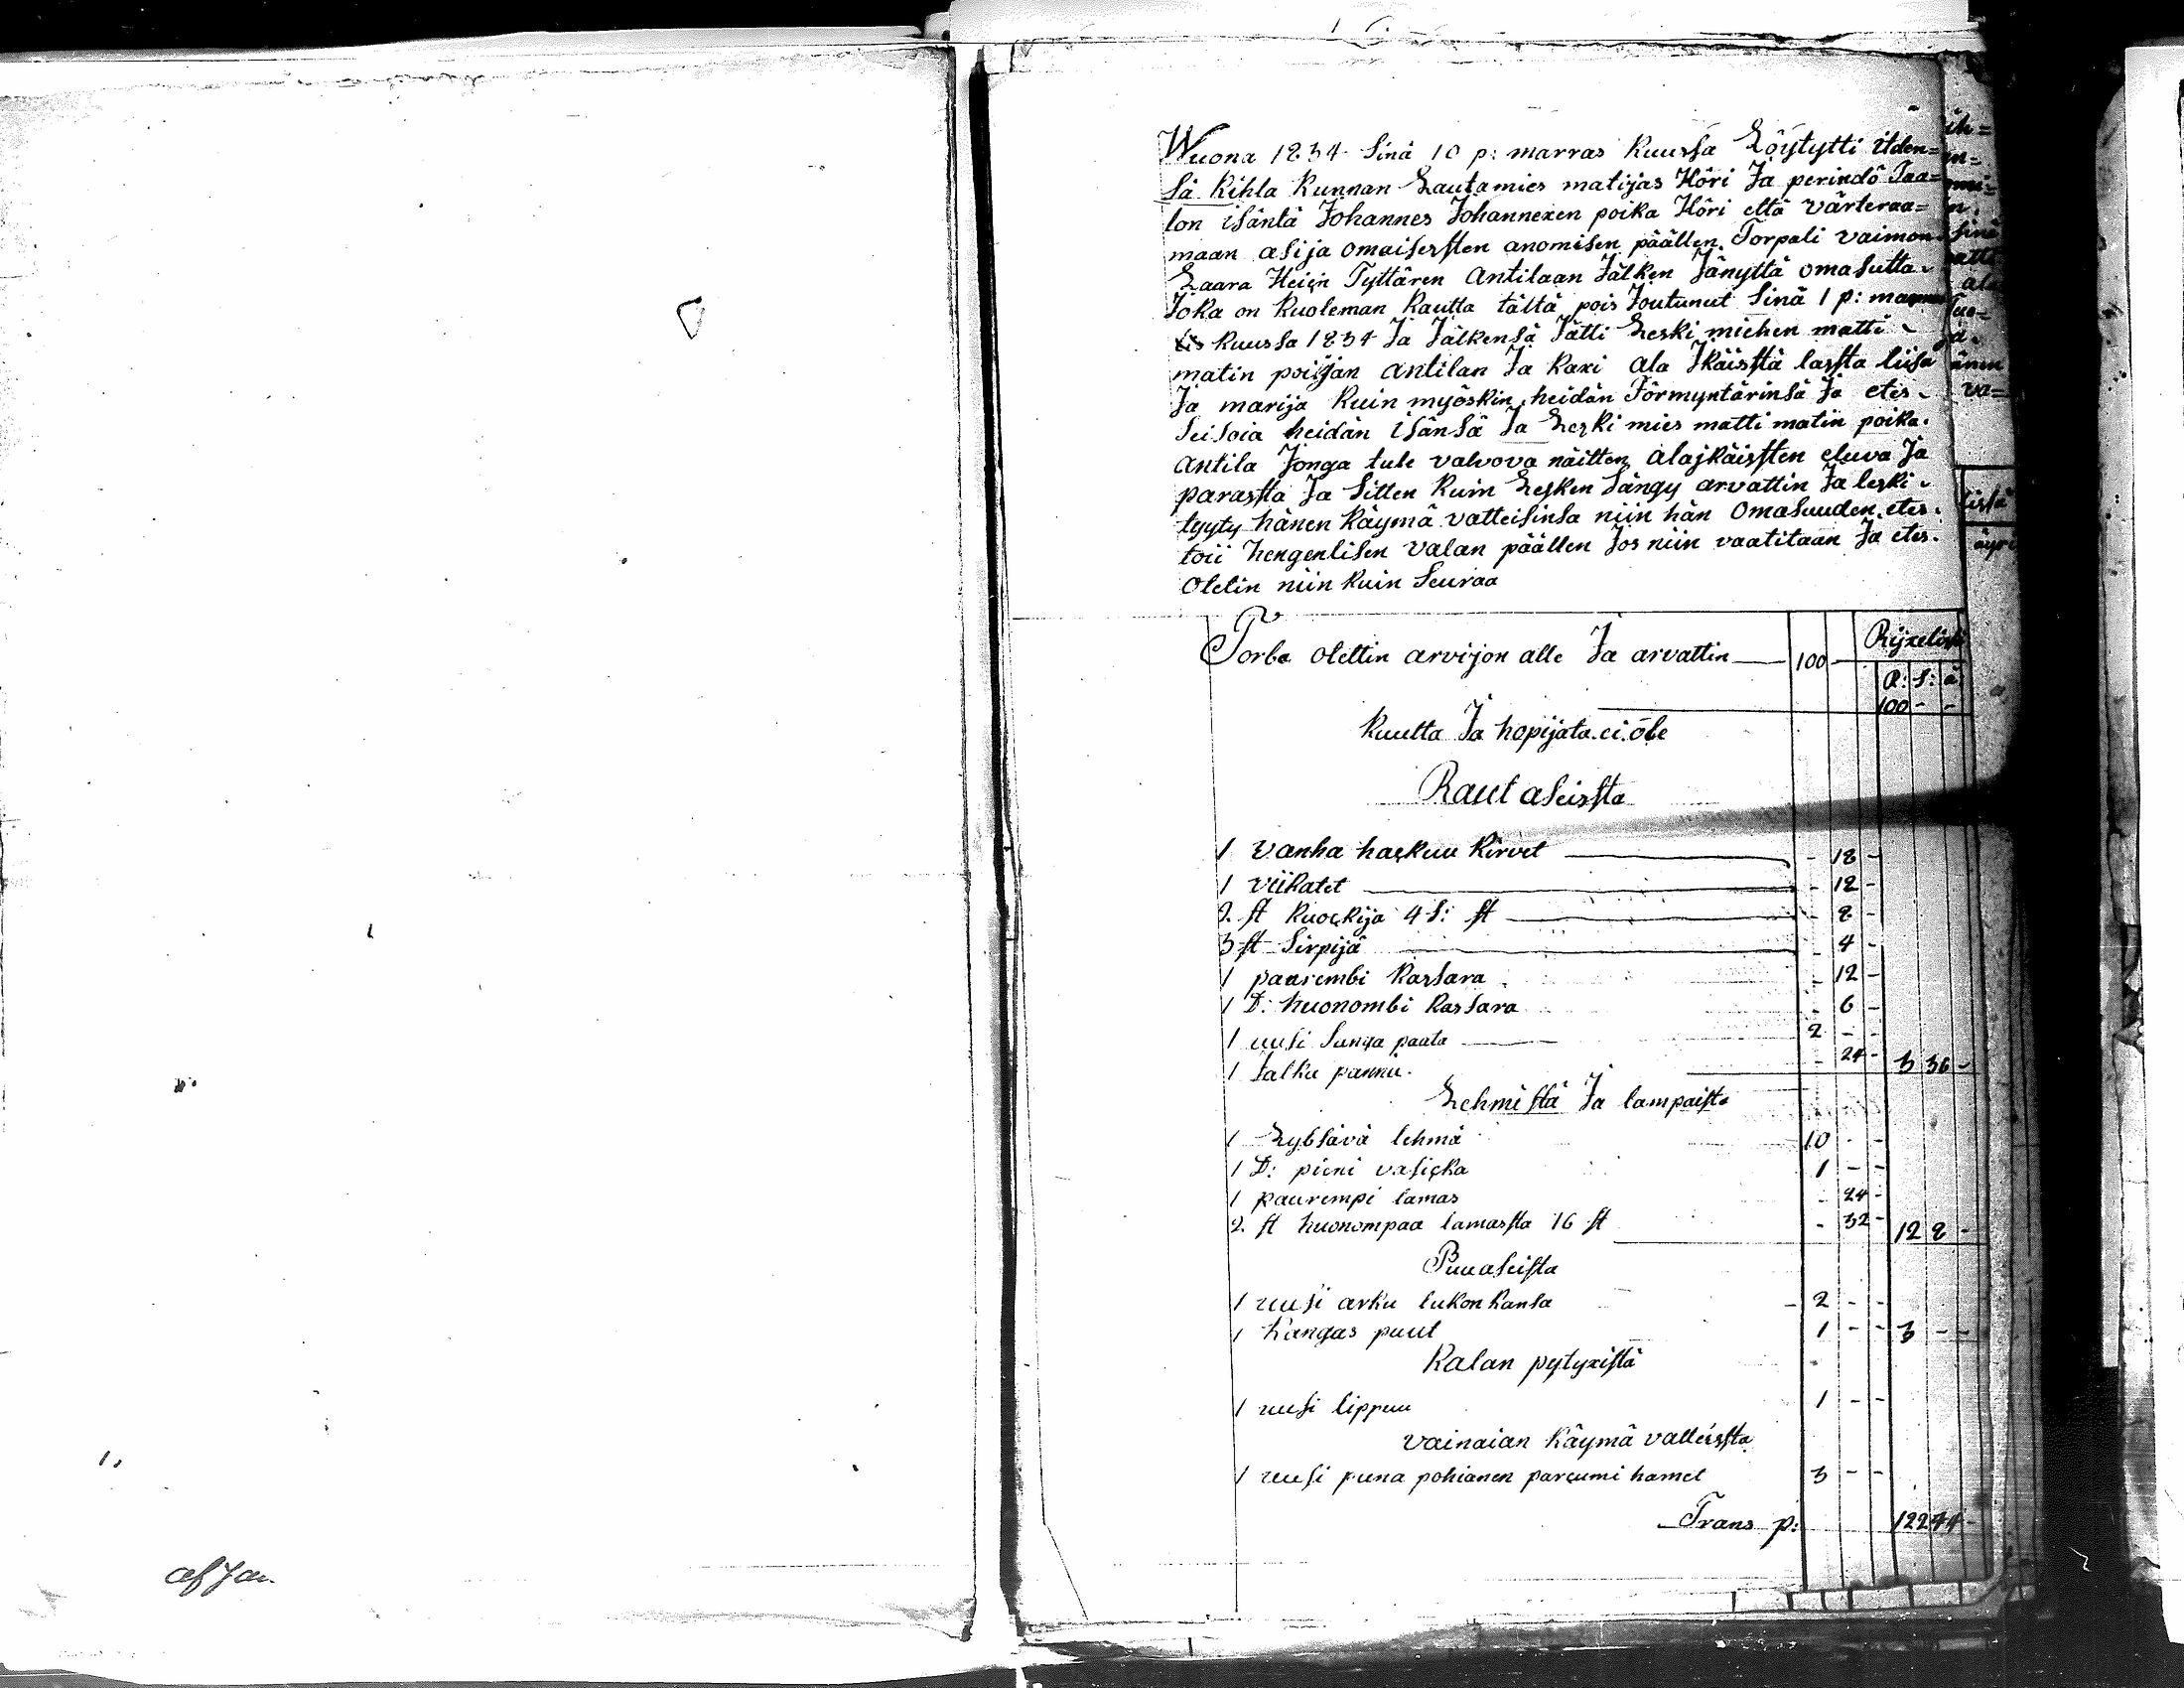 Wuona 1834 Sinä 10 p: marras Kuussa Löytytti itden=
sä Kihla Kunnan Lautamies matijas Höri Ja perindö Taa=
lon isäntä Johannes Johannexen poika Höri että värteraa=
maan asija omaisersten anomisen päällen Torpali vaimon
Saara Heien Tyttären Antilaan Jälken Jänyttä omasutta
Joka on Kuoleman Kautta tältä pois Joutunut Sinä 1 p: marras
Kuussa 1834 Ja Jälkensä Jätti Leski miehen matti
matin poijan Antilan Ja Kaxi ala Ikäistä lasta liisa
Ja marija Kuin myöskin heidän Förmyntärinsä Ja etes
seisoia heidän isänsä Ja Leski mies matti matin poika
Antila Jonga tule valvova näitten alajkäisten eluva Ja
parasta Ja Sitten Kuin Lesken Sängy arvattin Ja leski
tyyty hänen Käymä vatteisinsa niin hän Omasuuden etes
toii hengenlisen valan päällen Jos niin vaatitaan Ja etes
Olelin niin Kuin Seuraa
Torba olettin arvijon alle Ja arvattin 100 -
R: S: ä
100 - -
Kuutta Ja hopijata ei ole
Raut aseista
1 vanha hackuu Kirvet - 18 -
1 viikatet - 12 -
2 st Kuockija 4 S: st - 8 -
3 st Sirpijä - 4 -
1 paarembi Kassara - 12 -
1 D: huonombi Kassara - 6 -
1 uusi Sanga paata 2 - -
1 Jalka pannu - 24 - 3 36 -
Lehmistä Ja lampaista
1 Lybsävä lehmä 10 - -
1 D: pieni vasicka 1 - -
1 paurempi lamas - 24 -
2 st huonompaa lamasta 16 st - 32 - 12 8 -
Puuaseista
1 uusi arku lukon Kansa 2 - -
1 Kangas puut 1 - - 3 - -
Kalan pytyxistä
1 uusi lippuu 1 - -
vainaian Käymä vatteista
1 uusi puna pohianen parcumi hamet 3 - -
Trans p: 122 44 -